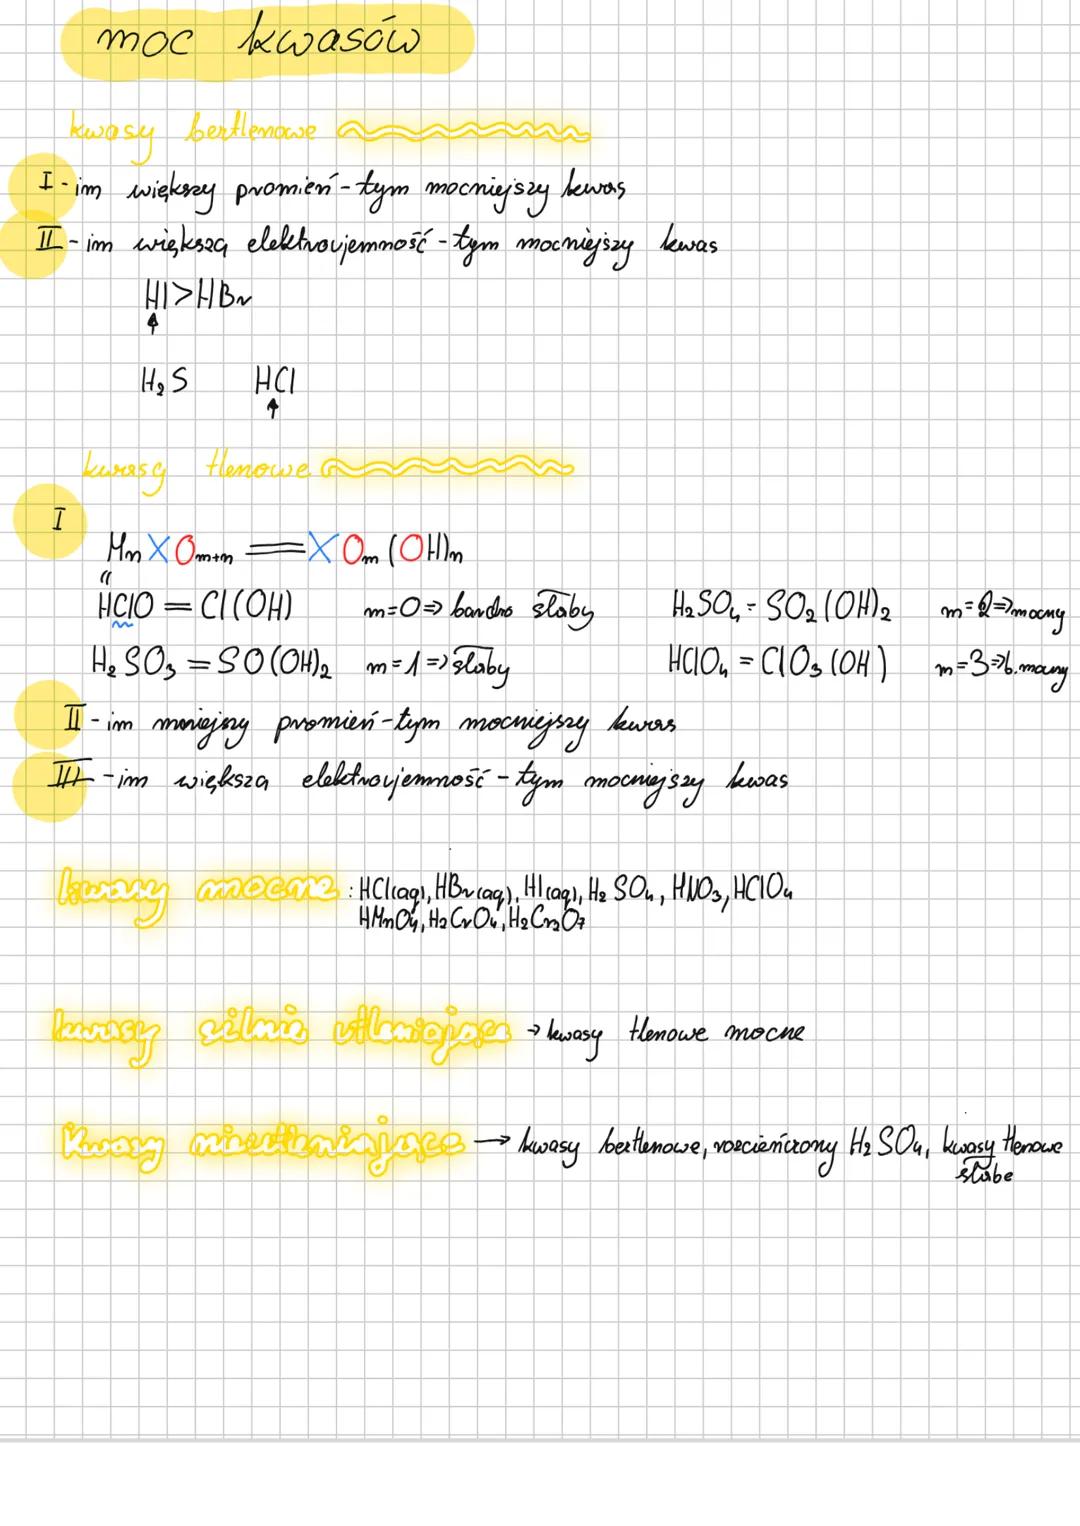 moc kwasów
kwasy beztlenowe
I - im większy promień - tym mocniejszy kwas
II - im większą elektroujemność - tym mocniejszy kwas
HI > HBr
H₂S HCl
kwasy tlenowe
I
HnXOm+n = XOm(OH)n
HClO = Cl(OH) m=0 => bardzo słaby H₂SO₄ = SO₂(OH)₂ m=2 => mocny
H₂SO₃ = SO(OH)₂ m=1 => słaby HClO₄ = ClO₃(OH) m=3 => b. mocny
II - im mniejszy promień - tym mocniejszy kwas
III - im większa elektroujemność - tym mocniejszy kwas
kwasy mocne : HCl(aq), HBr(aq), HI(aq), H₂SO₄, HNO₃, HClO₄
HMnO₄, H₂CrO₄, H₂Cr₂O₇
kwasy silnie utleniające → kwasy tlenowe mocne
Kwasy nieutleniające → kwasy beztlenowe, rozcieńczony H₂SO₄, kwasy tlenowe
słabe